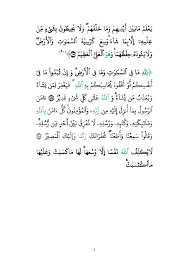 يَعْلَمُ مَا بَيْنَ أَيْدِيهِمْ وَمَا خَلْفَهُمْ وَلَا يُحِيطُونَ بِشَيْءٍ مِّنْ
عِلْمِهِ إِلَّا بِمَا شَاءَ وَسِعَ كُرْسِيُّهُ السَّمَوَاتِ وَالْأَرْضَ
وَلَا يَئُودُهُ حِفْظُهُمَا وَهُوَ الْعَلِيُّ الْعَظِيمُ
لِلَّهِ مَا فِي السَّمَوَاتِ وَمَا فِي الْأَرْضِ وَإِن تُبْدُوا مَا فِي
أَنفُسِكُمْ أَوْ تُخْفُوهُ يُحَاسِبْكُم بِهِ اللَّهُ فَيَغْفِرُ لِمَن يَشَاءُ
وَيُعَذِّبُ مَن يَشَاءُ وَاللَّهُ عَلَى كُلِّ شَيْءٍ قَدِيرٌ آمَنَ
الرَّسُولُ بِمَا أُنزِلَ إِلَيْهِ مِن رَّبِّهِ وَالْمُؤْمِنُونَ كُلٌّ آمَنَ بِاللَّهِ
وَمَلَائِكَتِهِ وَكُتُبِهِ وَرُسُلِهِ لَا نُفَرِّقُ بَيْنَ أَحَدٍ مِّن رُّسُلِهِ
وَقَالُوا سَمِعْنَا وَأَطَعْنَا غُفْرَانَكَ رَبَّنَا وَإِلَيْكَ الْمَصِيرُ
لَا يُكَلِّفُ اللَّهُ نَفْسًا إِلَّا وُسْعَهَا لَهَا مَا كَسَبَتْ وَعَلَيْهَا
مَا اكْتَسَبَتْ